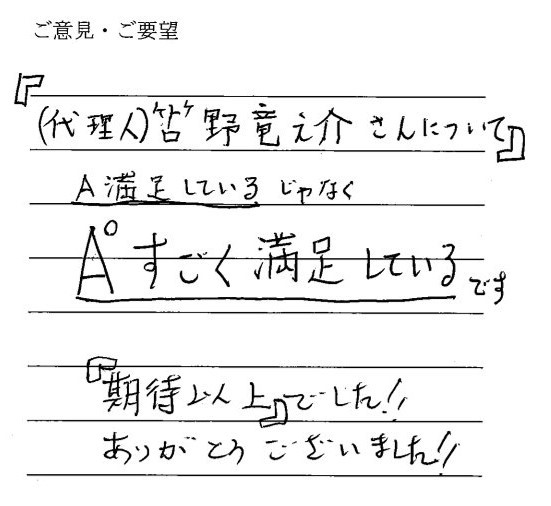 ご意見・ご要望
『(代理人)笘野竜之介さんについて』
A満足しているじゃなく
A°すごく満足しているです
『期待以上』でした!!
ありがとうございました!!